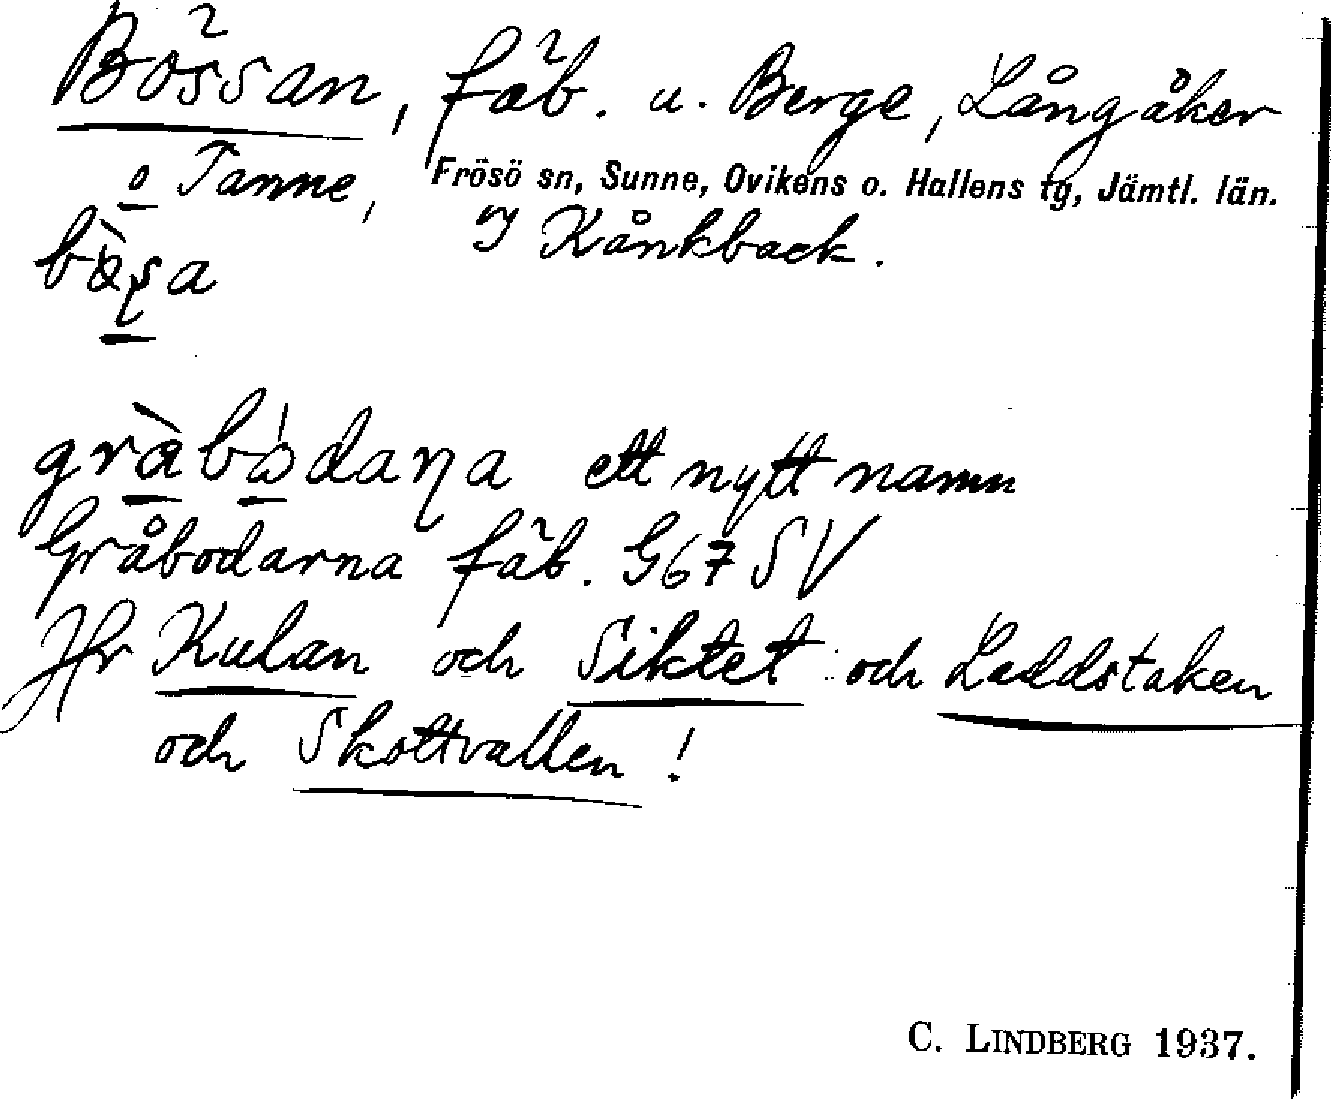 Bössan, fäb. u. Berge, Långåker
o Tanne, Frösö sn, Sunne, Ovikens o. Hallens tg, Jämtl. län.
Kånkback.
gråbodaɳa ett nytt namn
Gråbodarna fäb. G67 SV
Jfr Kulan och Siktet och Laddstaken
och Skottvallen!
C. LINDBERG 1937.